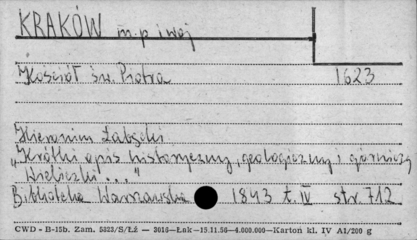 KRAKÓW m.p i woj
Kościół św. Piotra 1623
Hieronim Łabęcki
„Krótki opis historyczny, geologiczny i górniczy
Wieliczki..."
Biblioteka Warszawska 1843 t. IV str. 712
CWD - B-15b. Zam. 5823/S/Łż — 3016—Łak—15.11.56—4.000.000—Karton kl. IV A1/200 g